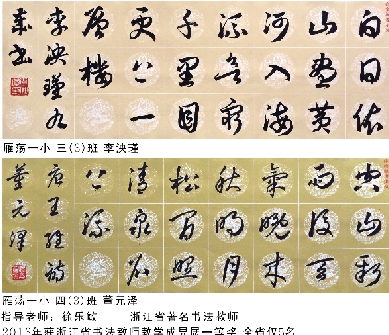 白日依
山盡黃
河入海
流欲窮
千里目
更上一
層樓
李泱瑾九
歲書
雁荡一小 三(3)班 李泱瑾
空山新
雨後天
氣晚來
秋明月
松間照
清泉石
上流
唐王維詩
董元澤
雁荡一小 四(3)班 董元泽
指导老师：徐乐敏 浙江省著名书法教师
2013年获浙江省书法教师教学成果展一等奖 全省仅5名